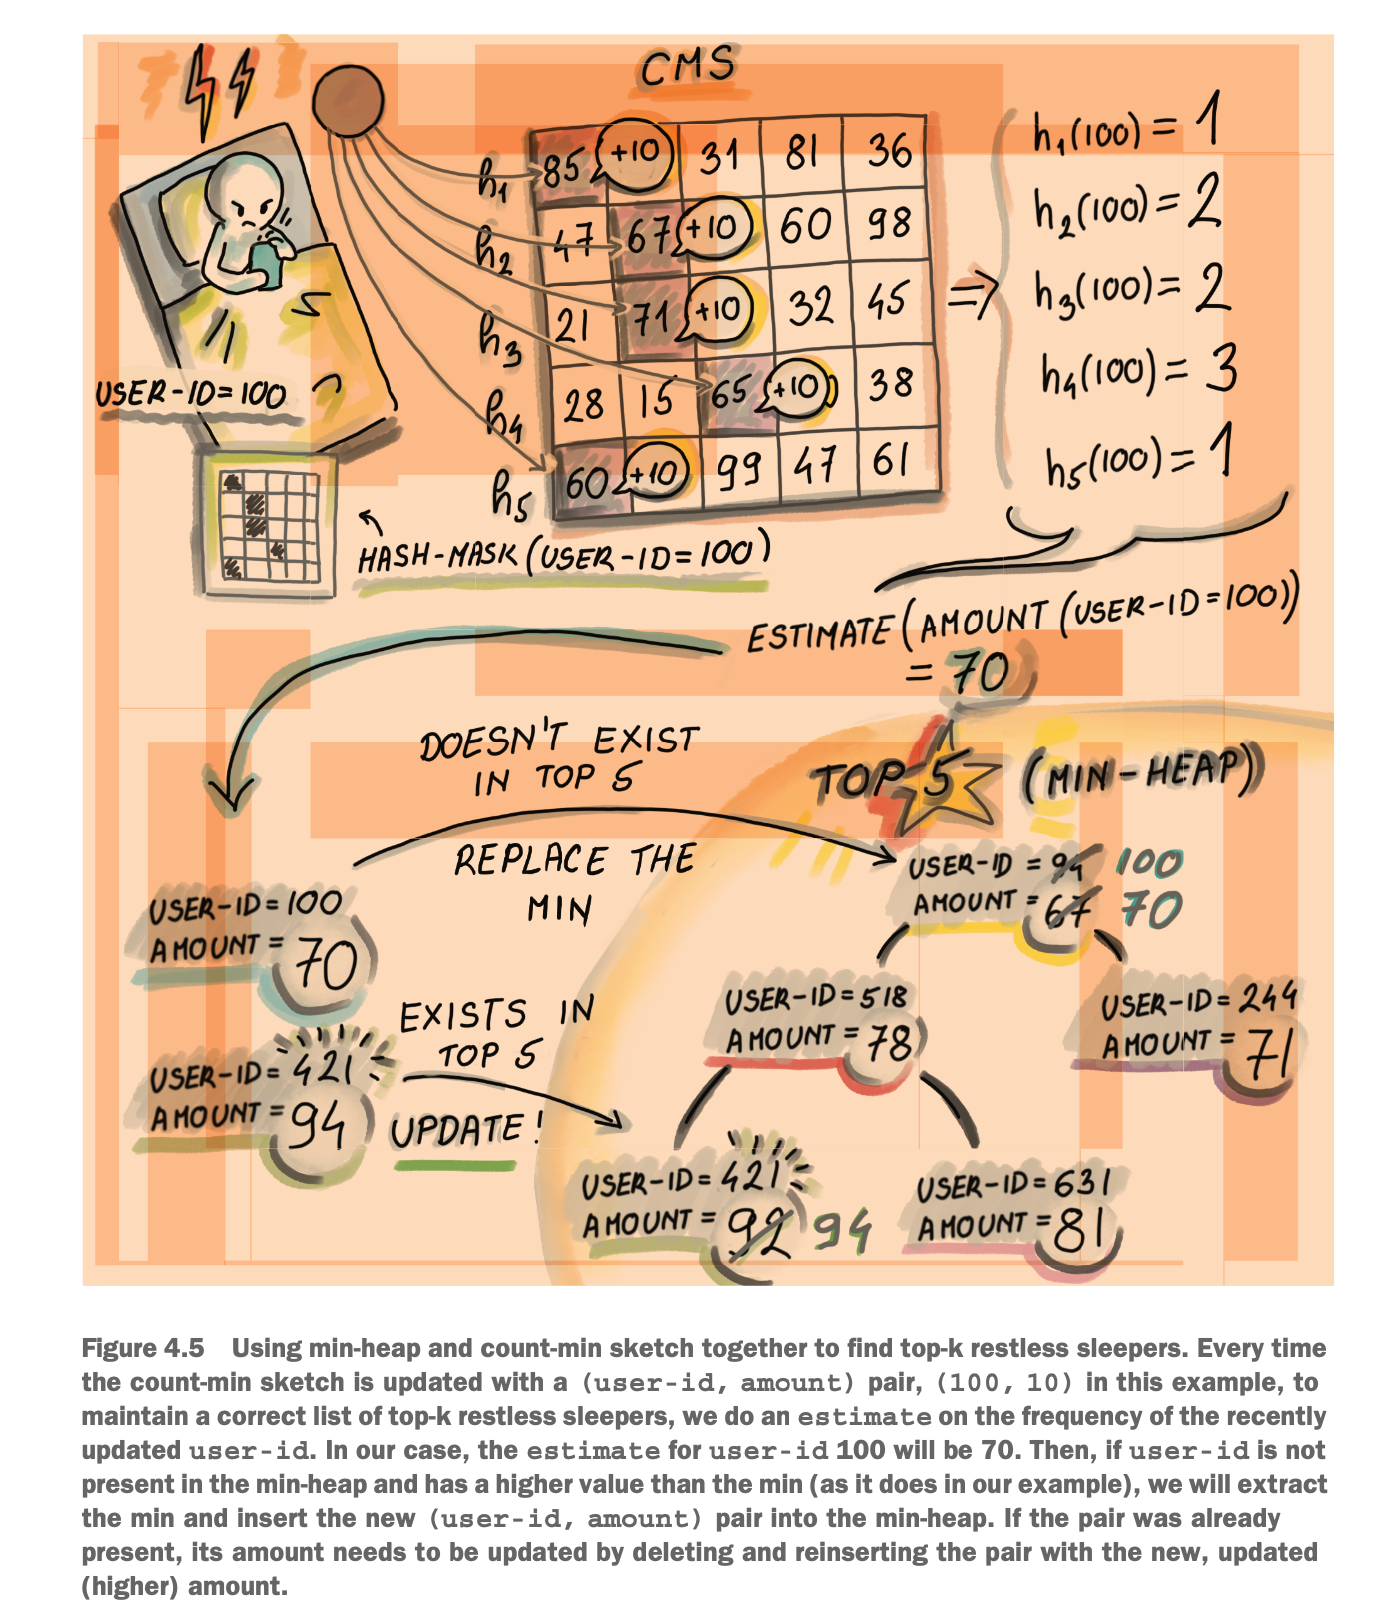 CMS
h1 85 +10 31 81 36
h2 47 67 +10 60 98
h3 21 71 +10 32 45
h4 28 15 65 +10 38
h5 60 +10 99 47 61
⇒
h1(100) = 1
h2(100) = 2
h3(100) = 2
h4(100) = 3
h5(100) = 1
USER-ID=100
HASH-MASK (USER-ID=100)
ESTIMATE (AMOUNT (USER-ID=100))
= 70
DOESN'T EXIST
IN TOP 5
REPLACE THE
MIN
TOP 5 (MIN-HEAP)
USER-ID = 94 100
AMOUNT = 67 70
USER-ID=100
AMOUNT = 70
USER-ID=518
AMOUNT = 78
USER-ID = 244
AMOUNT = 71
EXISTS IN
TOP 5
UPDATE!
USER-ID = 421
AMOUNT = 94
USER-ID = 421
AMOUNT = 92 94
USER-ID=631
AMOUNT = 81
Figure 4.5 Using min-heap and count-min sketch together to find top-k restless sleepers. Every time
the count-min sketch is updated with a (user-id, amount) pair, (100, 10) in this example, to
maintain a correct list of top-k restless sleepers, we do an estimate on the frequency of the recently
updated user-id. In our case, the estimate for user-id 100 will be 70. Then, if user-id is not
present in the min-heap and has a higher value than the min (as it does in our example), we will extract
the min and insert the new (user-id, amount) pair into the min-heap. If the pair was already
present, its amount needs to be updated by deleting and reinserting the pair with the new, updated
(higher) amount.